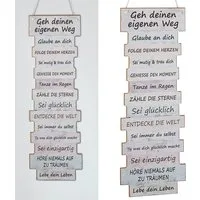 Geh deinen
eigenen Weg
Glaube an dich
FOLGE DEINEM HERZEN
Sei mutig & frau dich
GENIESSE DEN MOMENT
Tanze im Regen
ZÄHLE DIE STERNE
Sei glücklich
ENTDECKE DIE WELT
Sei immer du selbst
TU WAS DU LIEBST
Sei einzigartig
HÖRE NIEMALS AUF
ZU TRÄUMEN
Lebe dein Leben
Geh deinen
eigenen Weg
Glaube an dich
FOLGE DEINEM HERZEN
Sei mutig & trau dich
GENIESSE DEN MOMENT
Tanze im Regen
ZÄHLE DIE STERNE
Sei glücklich
ENTDECKE DIE WELT
Sei immer du selbst
TU WAS DU LIEBST
Sei einzigartig
HÖRE NIEMALS AUF
ZU TRÄUMEN
Lebe dein Leben